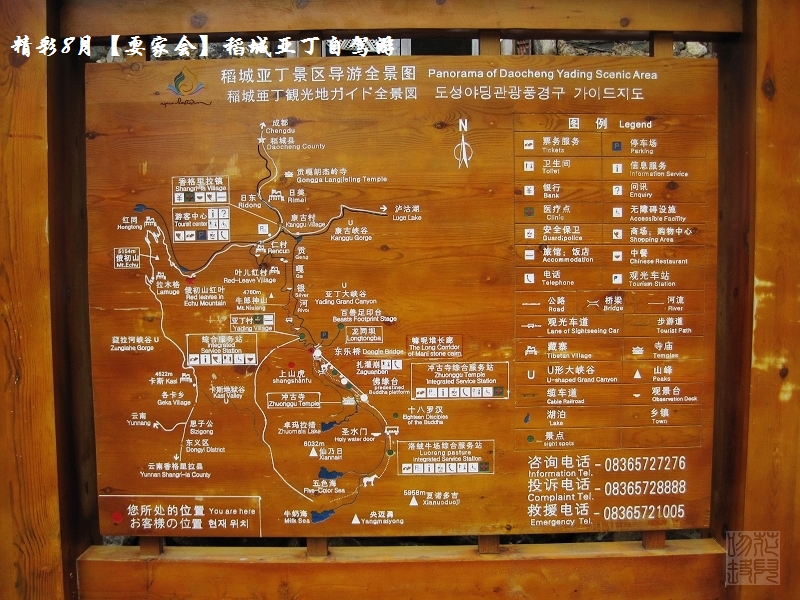 精彩8月【耍家会】稻城亚丁自驾游
稻城亚丁景区导游全景图 Panorama of Daocheng Yading Scenic Area
稻城亜丁観光地ガイド全景図 도성야딩관광풍경구 가이드지도
成都
Chengdu
稻城县
Daocheng County
N
贡嘎朗杰岭寺
Gongga Langjieling Temple
香格里拉镇
Shangri-la Village
日东
Ridong
日美
Rimei
泸沽湖
Lugu Lake
游客中心
Tourist center
康古村
Kanggu Village
康古峡谷
Kanggu Gorge
红同
Hongtong
仁村
Rencun
俄初山
Mt.Echu
拉木格
Lamuge
俄初山红叶
Red leaves in
Echu Mountain
叶儿红村
Red-Leave Village
牛郎神山
亚丁大峡谷
Yading Grand Canyon
百兽足印台
Beasts Footprint Stage
亚丁村
Yading Village
龙同坝
Longtongba
综合服务站
Integrated
Service Station
嘛呢堆长廊
The Long Corridor
of Mani stone cairn
东乐桥 Dongle Bridge
上山虎
shangshanfu
冲古寺综合服务站
Zhuonggu Temple
Integrated Service Station
佛缘台
predestined
Buddha platform
卡斯
Kasi
卡斯地狱谷
Kasi Valley
各卡乡
Geka Village
冲古寺
Zhuonggu Temple
云南
Yunnan
思子公
Sizigong
十八罗汉
Eighteen Disciples
of the Buddha
卓玛拉措
Zhuomala Lake
圣水门
Holy water door
东义区
Dongyi District
云南香格里拉县
Yunnan Shangri-la County
6032m
仙乃日
Xiannairi
洛绒牛场综合服务站
Luorong pasture
Integrated Service Station
五色海
Five-Color Sea
5958m
夏诺多吉
Xianuoduoji
牛奶海
Milk Sea
央迈勇
Yangmaiyong
您所处的位置 You are here
お客様の位置 현재 위치
图 例 Legend
票务服务
Tickets
停车场
Parking
卫生间
Toilet
信息服务
Information Service
银行
Bank
问讯
Enquiry
医疗点
Clinic
无障碍设施
Accessible Facility
安全保卫
Guard/police
商场；购物中心
Shopping Area
旅馆；饭店
Accommodation
中餐
Chinese Restaurant
电话
Telephone
观光车站
Tourism Station
公路
Road
桥梁
Bridge
河流
River
观光车道
Lane of Sightseeing Car
步游道
Tourist Path
藏寨
Tibetan Village
寺庙
Temples
U形大峡谷
U-shaped Grand Canyon
山峰
Peaks
缆车道
Cable Railroad
观景台
Observation Deck
湖泊
Lake
乡镇
Town
景点
sight spots
咨询电话 – 08365727276
Information Tel.
投诉电话 – 08365728888
Complaint Tel.
救援电话 – 08365721005
Emergency Tel.